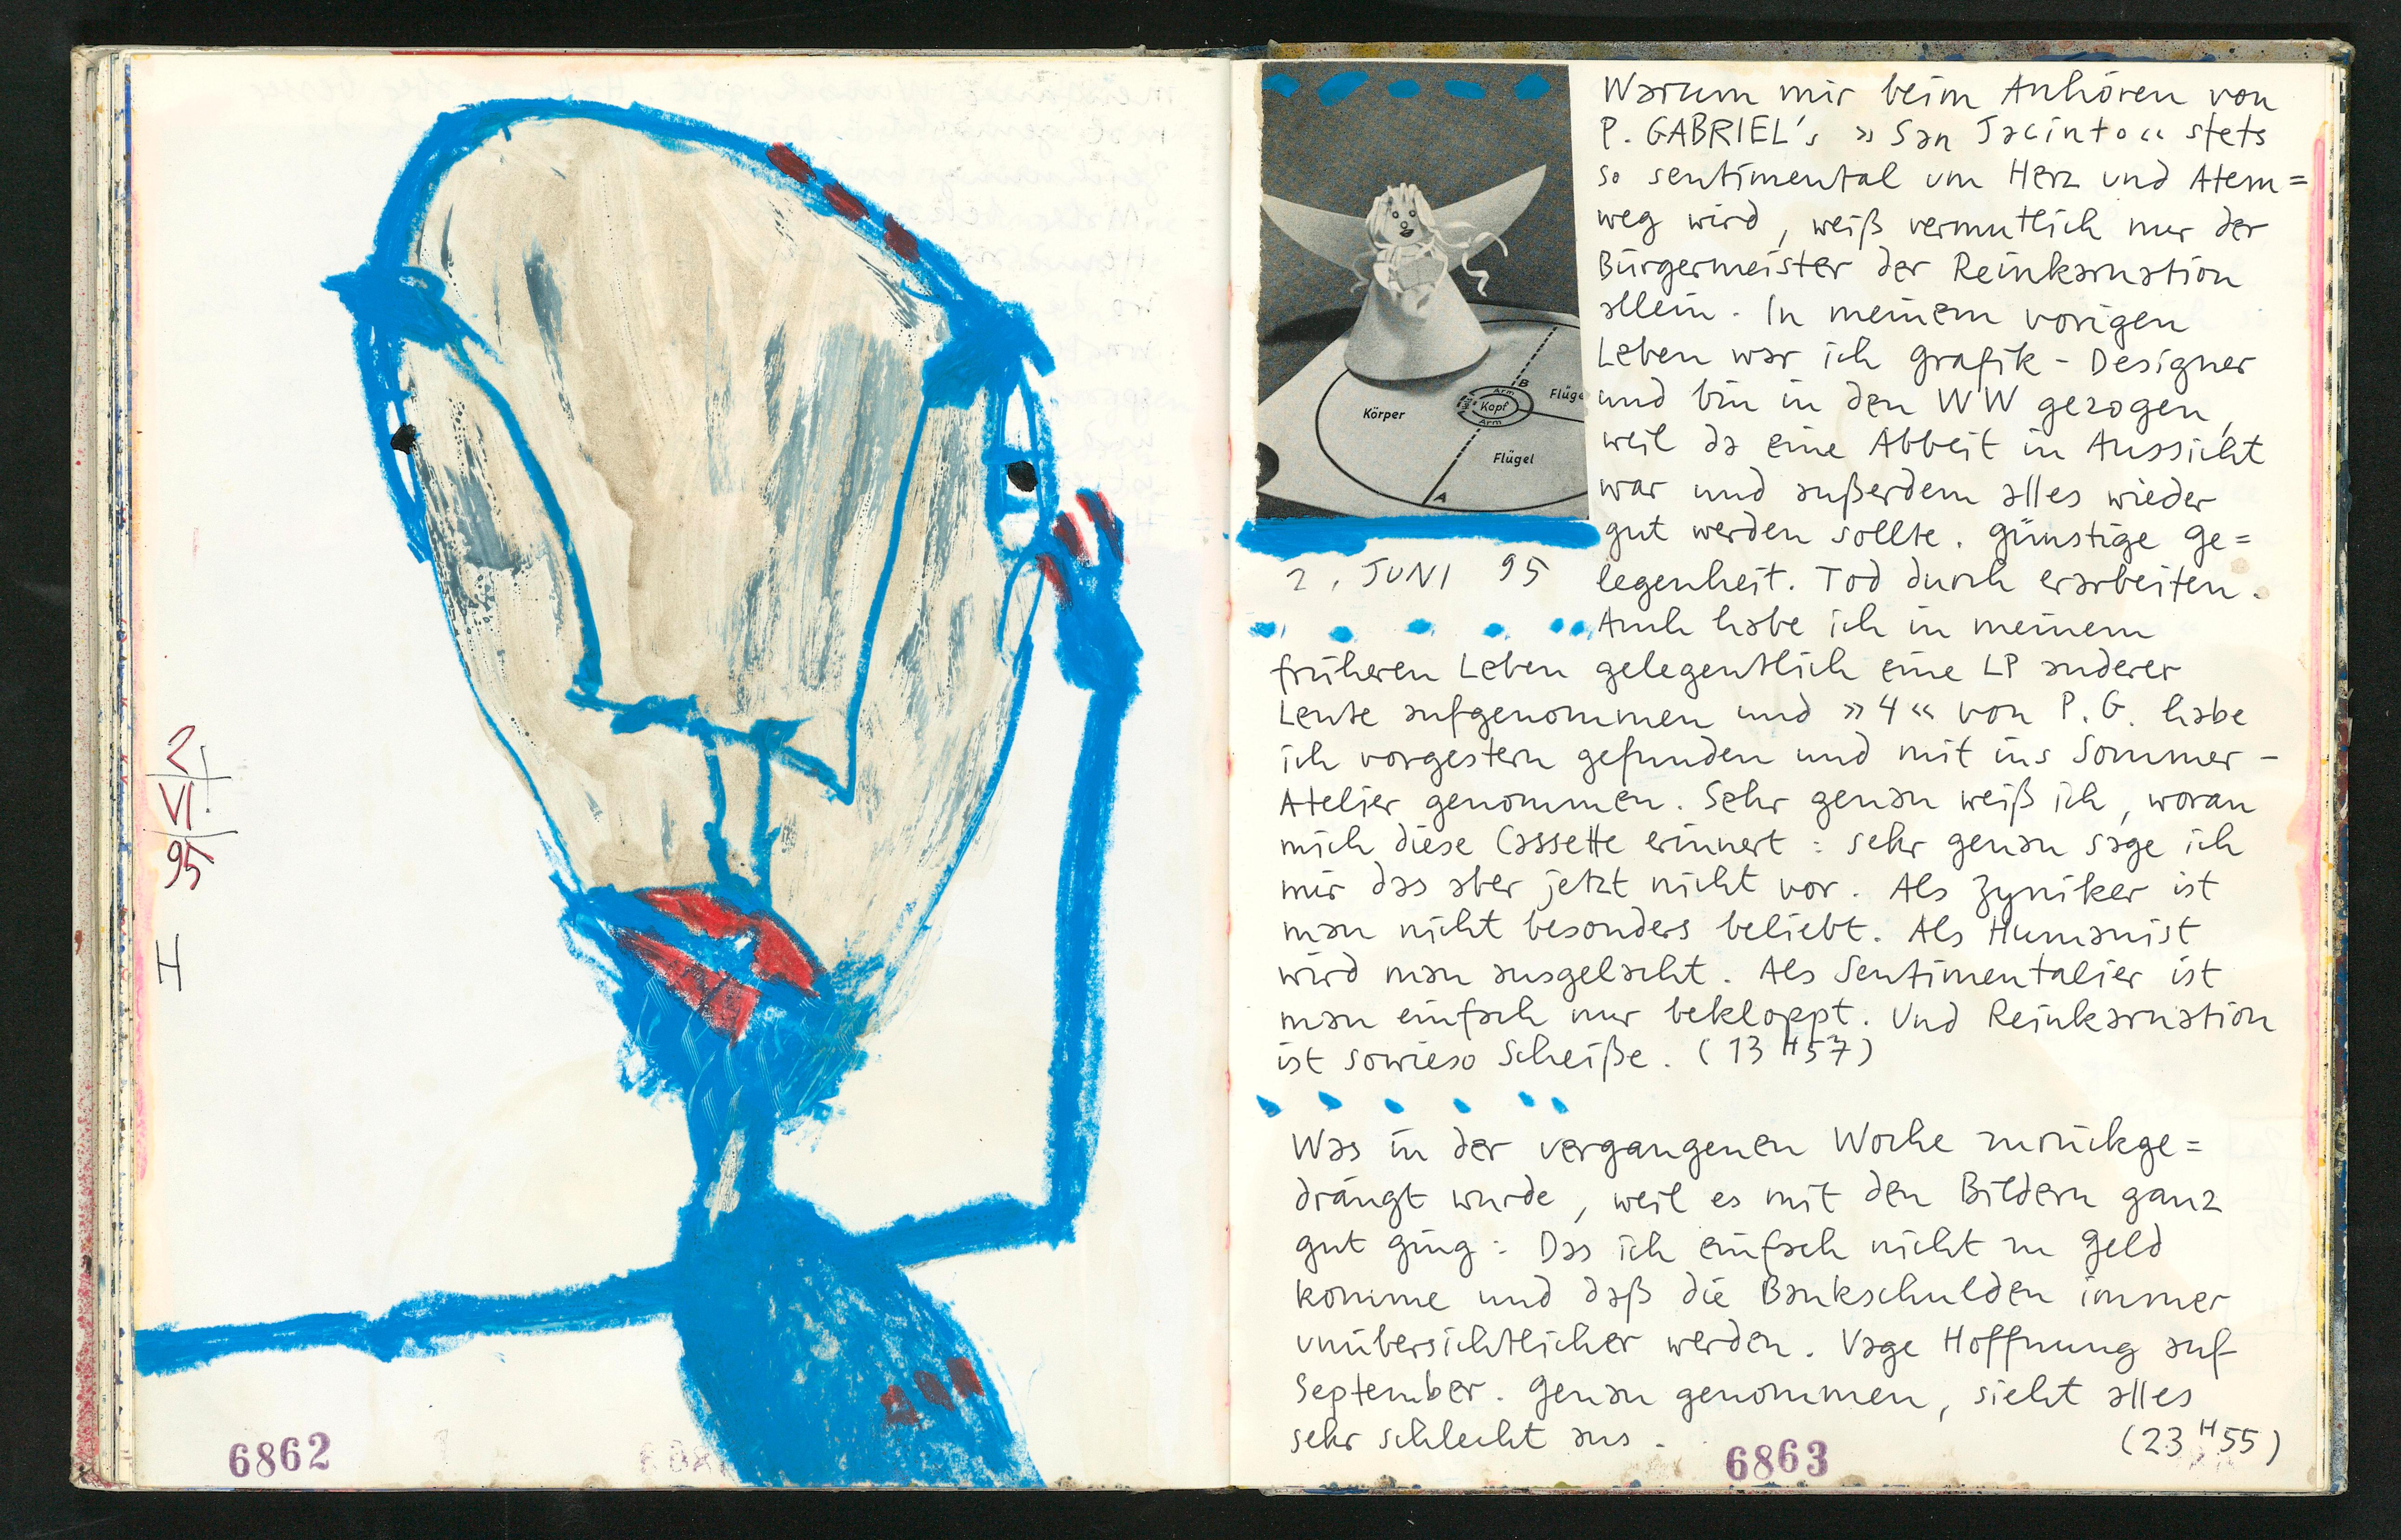 2
VI.
95
H
6862
Körper
Arm
B
Kopf
Arm
Flüge
Flügel
A
2. JUNI 95
Warum mir beim Anhören von
P. GABRIEL's »San Jacinto« stets
so sentimental um Herz und Atem=
weg wird, weiß vermutlich nur der
Bürgermeister der Reinkarnation
allein. In meinem vorigen
Leben war ich Grafik-Designer
und bin in den WW gezogen,
weil da eine Abbeit in Aussicht
war und außerdem alles wieder
gut werden sollte. Günstige Ge=
legenheit. Tod durch erarbeiten.
Auch habe ich in meinem
früheren Leben gelegentlich eine LP anderer
Leute aufgenommen und »4« von P.G. habe
ich vorgestern gefunden und mit ins Sommer-
Atelier genommen. Sehr genau weiß ich, woran
mich diese Cassette erinnert: sehr genau sage ich
mir das aber jetzt nicht vor. Als Zyniker ist
man nicht besonders beliebt. Als Humanist
wird man ausgelacht. Als Sentimentalier ist
man einfach nur bekloppt. Und Reinkarnation
ist sowieso Scheiße. (13 H 57)
Was in der vergangenen Woche zurückge=
drängt wurde, weil es mit den Bildern ganz
gut ging: Das ich einfach nicht zu Geld
komme und daß die Bankschulden immer
unübersichtlicher werden. Vage Hoffnung auf
September. Genau genommen, sieht alles
sehr schlecht aus.
(23 H 55)
6863